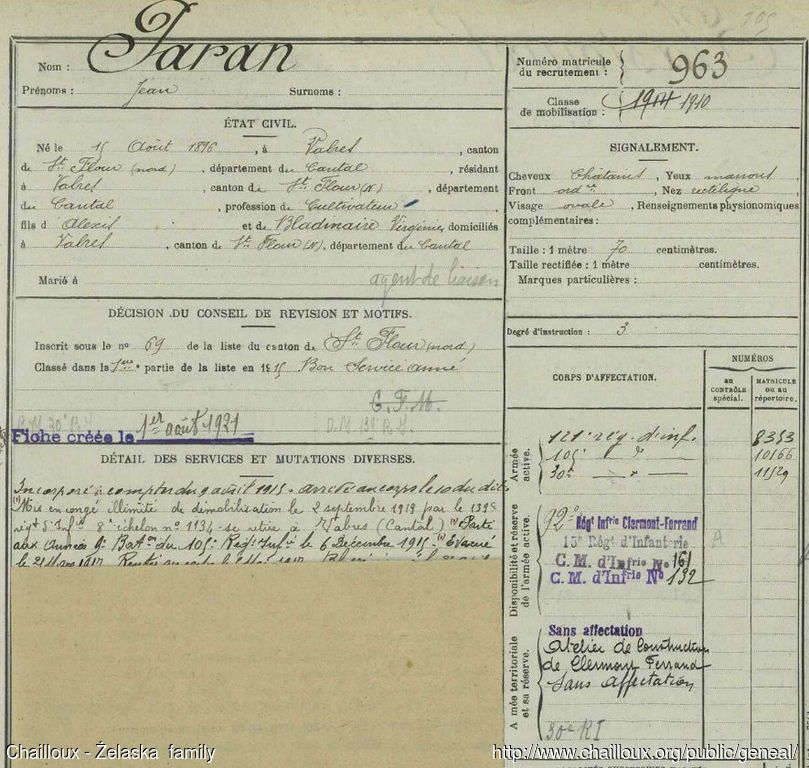 705
Nom : Paran
Prénoms : Jean Surnoms :
Numéro matricule du recrutement : 963
Classe de mobilisation : 1914 1910
ÉTAT CIVIL.
Né le 15 Août 1896, à Vabres, canton
de St Flour (nord), département du Cantal, résidant
à Vabres, canton de St Flour (N), département
du Cantal, profession de Cultivateur
fils d' Alexis et de Bladinaire Virginie, domiciliés
à Vabres, canton de St Flour (N), département du Cantal
Marié à
agent de liaison
SIGNALEMENT.
Cheveux Chatains, Yeux marrons
Front ordre, Nez rectiligne
Visage ovale, Renseignements physionomiques
complémentaires :
Taille : 1 mètre 70 centimètres.
Taille rectifiée : 1 mètre centimètres.
Marques particulières :
Degré d'instruction : 3
DÉCISION DU CONSEIL DE REVISION ET MOTIFS.
Inscrit sous le no 69 de la liste du canton de St Flour (nord)
Classé dans la 1ere partie de la liste en 1915 Bon Service armé
C. F. M.
Fiche créée le 1er août 1921
D.M. 139e R.I.
DÉTAIL DES SERVICES ET MUTATIONS DIVERSES.
Incorporé à compter du 9 août 1915 arrivé au corps le 10 du dit
(1) Mis en congé illimité de démobilisation le 2 septembre 1919 par le 139e
régt d'Infie 8e échelon no 1134 se retire à Vabres (Cantal) (1) Parti
aux Armées 9e Baton du 105e Régt Infie le 6 Décembre 1915 (1) Evacué
le 21 Mars 1917
CORPS D'AFFECTATION.
NUMÉROS
au CONTRÔLE spécial.
MATRICULE ou au répertoire.
Armée active.
121e rég. d'inf. 8353
105e " " 10166
30e — " — 11529
Disponibilité et réserve de l'armée active.
92e Régt Infrie Clermont-Ferrand
15e Régt d'Infanterie A
C. M. d'Infrie No 161
C. M. d'Infrie No 132
Armée territoriale et sa réserve.
Sans affectation
Atelier de Construction
de Clermont Ferrand
Sans affectation
30e RI
Chailloux - Żelaska family
http://www.chailloux.org/public/geneal/